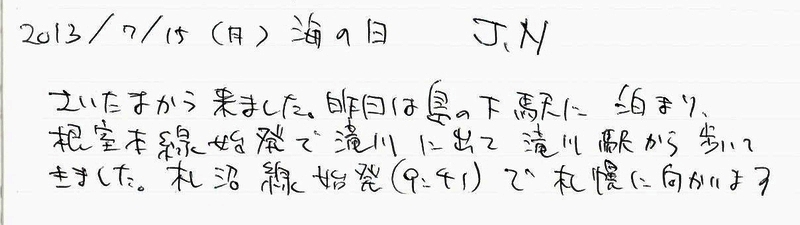 2013/7/15(月)海の日 J.N
さいたまから来ました。昨日は島の下駅に泊まり、
根室本線始発で滝川に出て滝川駅から歩いて
きました。札沼線始発(9:41)で札幌に向かいます